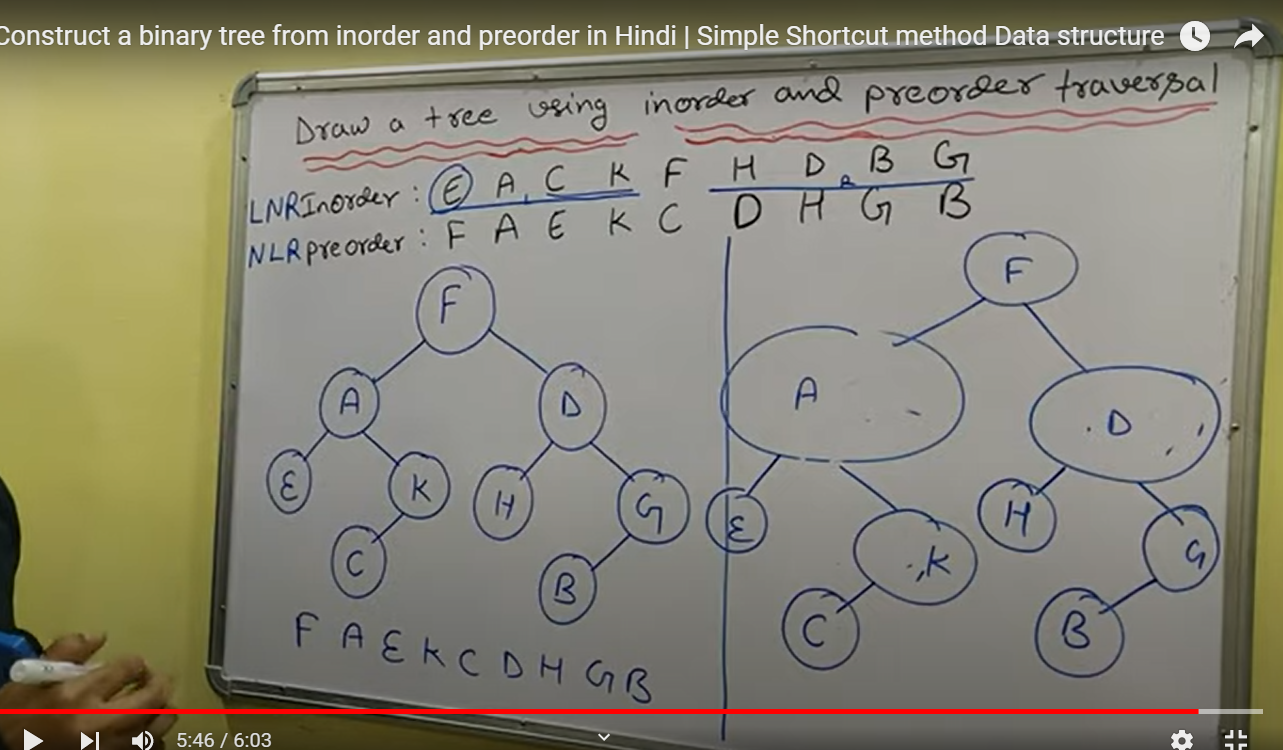 Construct a binary tree from inorder and preorder in Hindi | Simple Shortcut method Data structure
Draw a tree using inorder and preorder traversal
LNR Inorder : E A C K F H D B G
NLR preorder : F A E K C D H G B
F
A D
E K H G
C B
F A E K C D H G B
F
A D
E K H G
C B
5:46 / 6:03